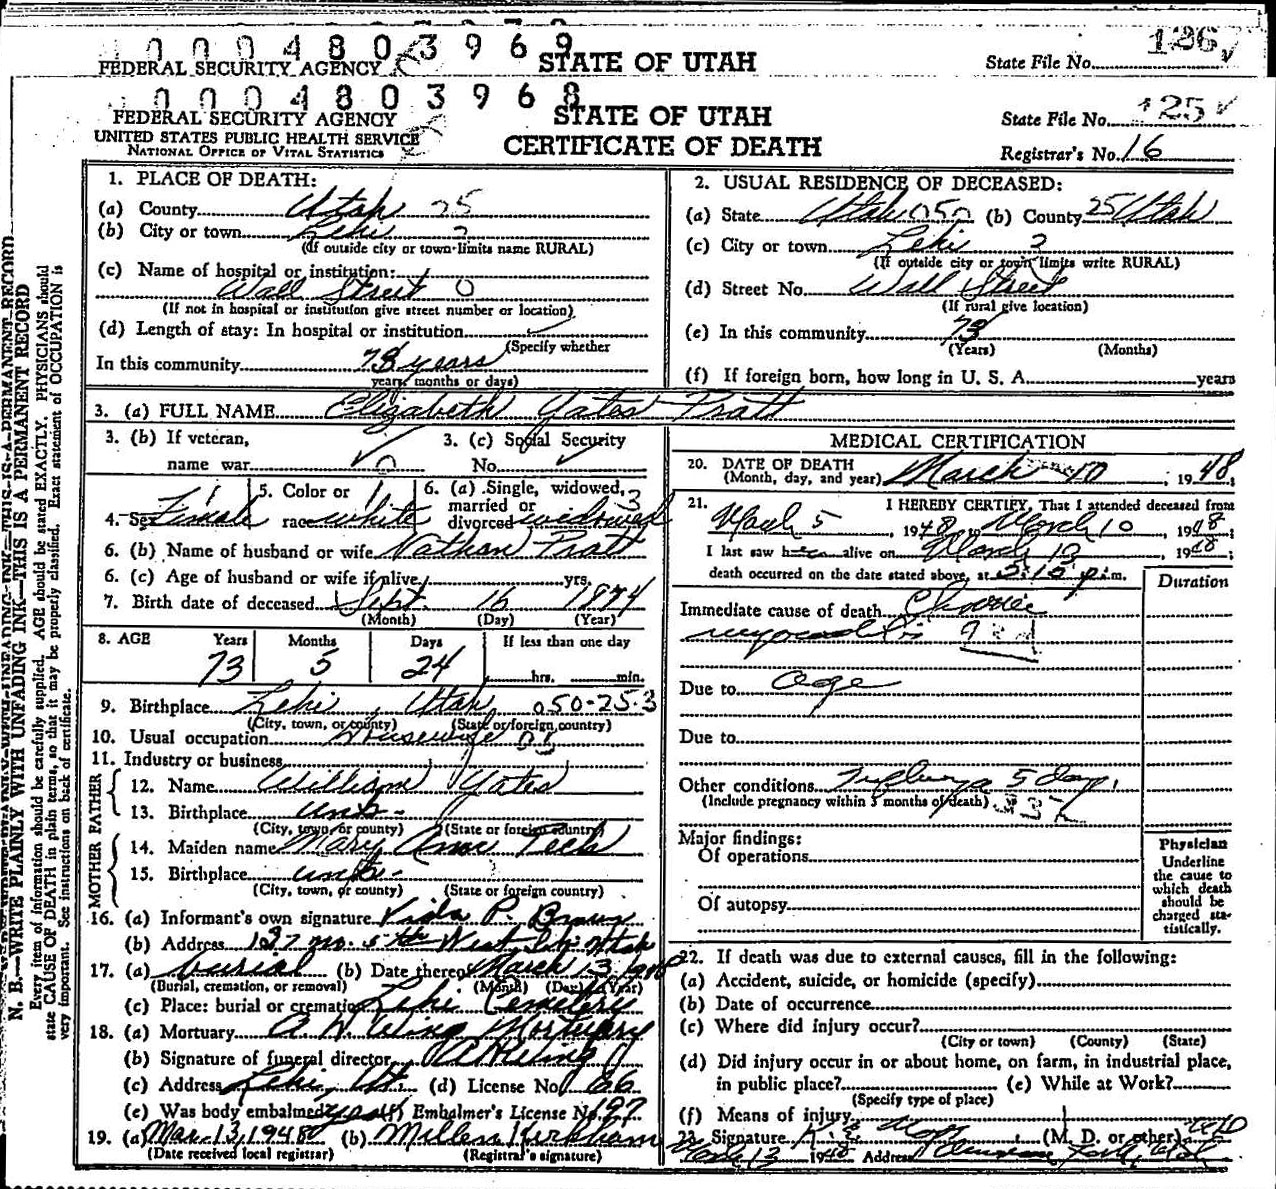 0 0 0 4 8 0 3 9 6 9
FEDERAL SECURITY AGENCY STATE OF UTAH State File No. 126
0 0 0 4 8 0 3 9 6 8
FEDERAL SECURITY AGENCY STATE OF UTAH State File No. 125
UNITED STATES PUBLIC HEALTH SERVICE CERTIFICATE OF DEATH
NATIONAL OFFICE OF VITAL STATISTICS Registrar's No. 16
N. B.—WRITE PLAINLY WITH UNFADING INK—THIS IS A PERMANENT RECORD
Every item of information should be carefully supplied. AGE should be stated EXACTLY. PHYSICIANS should
state CAUSE OF DEATH in plain terms, so that it may be properly classified. Exact statement of OCCUPATION is
very important. See instructions on back of certificate.
1. PLACE OF DEATH:
(a) County Utah 25
(b) City or town Lehi 3
(If outside city or town limits name RURAL)
(c) Name of hospital or institution:
Wall Street 0
(If not in hospital or institution give street number or location)
(d) Length of stay: In hospital or institution
(Specify whether
In this community 73 years
years, months or days)
2. USUAL RESIDENCE OF DECEASED:
(a) State Utah 050 (b) County 25 Utah
(c) City or town Lehi 3
(If outside city or town limits write RURAL)
(d) Street No. Wall Street
(If rural give location)
(e) In this community 73
(Years) (Months)
(f) If foreign born, how long in U. S. A. years
3. (a) FULL NAME Elizabeth Yates Pratt
3. (b) If veteran, 3. (c) Social Security
name war 0 No.
4. Sex Female 1 5. Color or race White 1 6. (a) Single, widowed, married or divorced widowed 3
6. (b) Name of husband or wife Nathan Pratt
6. (c) Age of husband or wife if alive yrs.
7. Birth date of deceased Sept. 16 1874
(Month) (Day) (Year)
8. AGE Years Months Days If less than one day
73 5 24 hrs. min.
9. Birthplace Lehi Utah 050-25-3
(City, town, or county) (State or foreign country)
10. Usual occupation Housewife
11. Industry or business
FATHER
12. Name William Yates
13. Birthplace
(City, town or county) (State or foreign country)
MOTHER
14. Maiden name Mary Ann
15. Birthplace
(City, town, or county) (State or foreign country)
16. (a) Informant's own signature Vida P. Brown
(b) Address 137 No. 5th West
17. (a) burial (b) Date thereof March 13 1948
(Burial, cremation, or removal) (Month) (Day) (Year)
(c) Place: burial or cremation Lehi Cemetery
18. (a) Mortuary A. H. Wing Mortuary
(b) Signature of funeral director
(c) Address Lehi, Ut. (d) License No. 66
(e) Was body embalmed yes (f) Embalmer's License No. 197
19. (a) Mar. 13, 1948 (b) Millen Kirkham
(Date received local registrar) (Registrar's signature)
MEDICAL CERTIFICATION
20. DATE OF DEATH
(Month, day, and year) March 10, 1948
21. I HEREBY CERTIFY, That I attended deceased from
March 5, 1948, to March 10, 1948;
I last saw h alive on March 10, 1948;
death occurred on the date stated above, at 5:15 p.m.
Duration
Immediate cause of death Chronic
myocarditis 93d
Due to age
Due to
Other conditions Influenza 5 days.
(Include pregnancy within 3 months of death)
Major findings:
Of operations
Of autopsy
Physician
Underline
the cause to
which death
should be
charged sta-
tistically.
22. If death was due to external causes, fill in the following:
(a) Accident, suicide, or homicide (specify)
(b) Date of occurrence
(c) Where did injury occur?
(City or town) (County) (State)
(d) Did injury occur in or about home, on farm, in industrial place,
in public place? (e) While at Work?
(Specify type of place)
(f) Means of injury
23. Signature (M. D. or other)
March 13 1948 Address